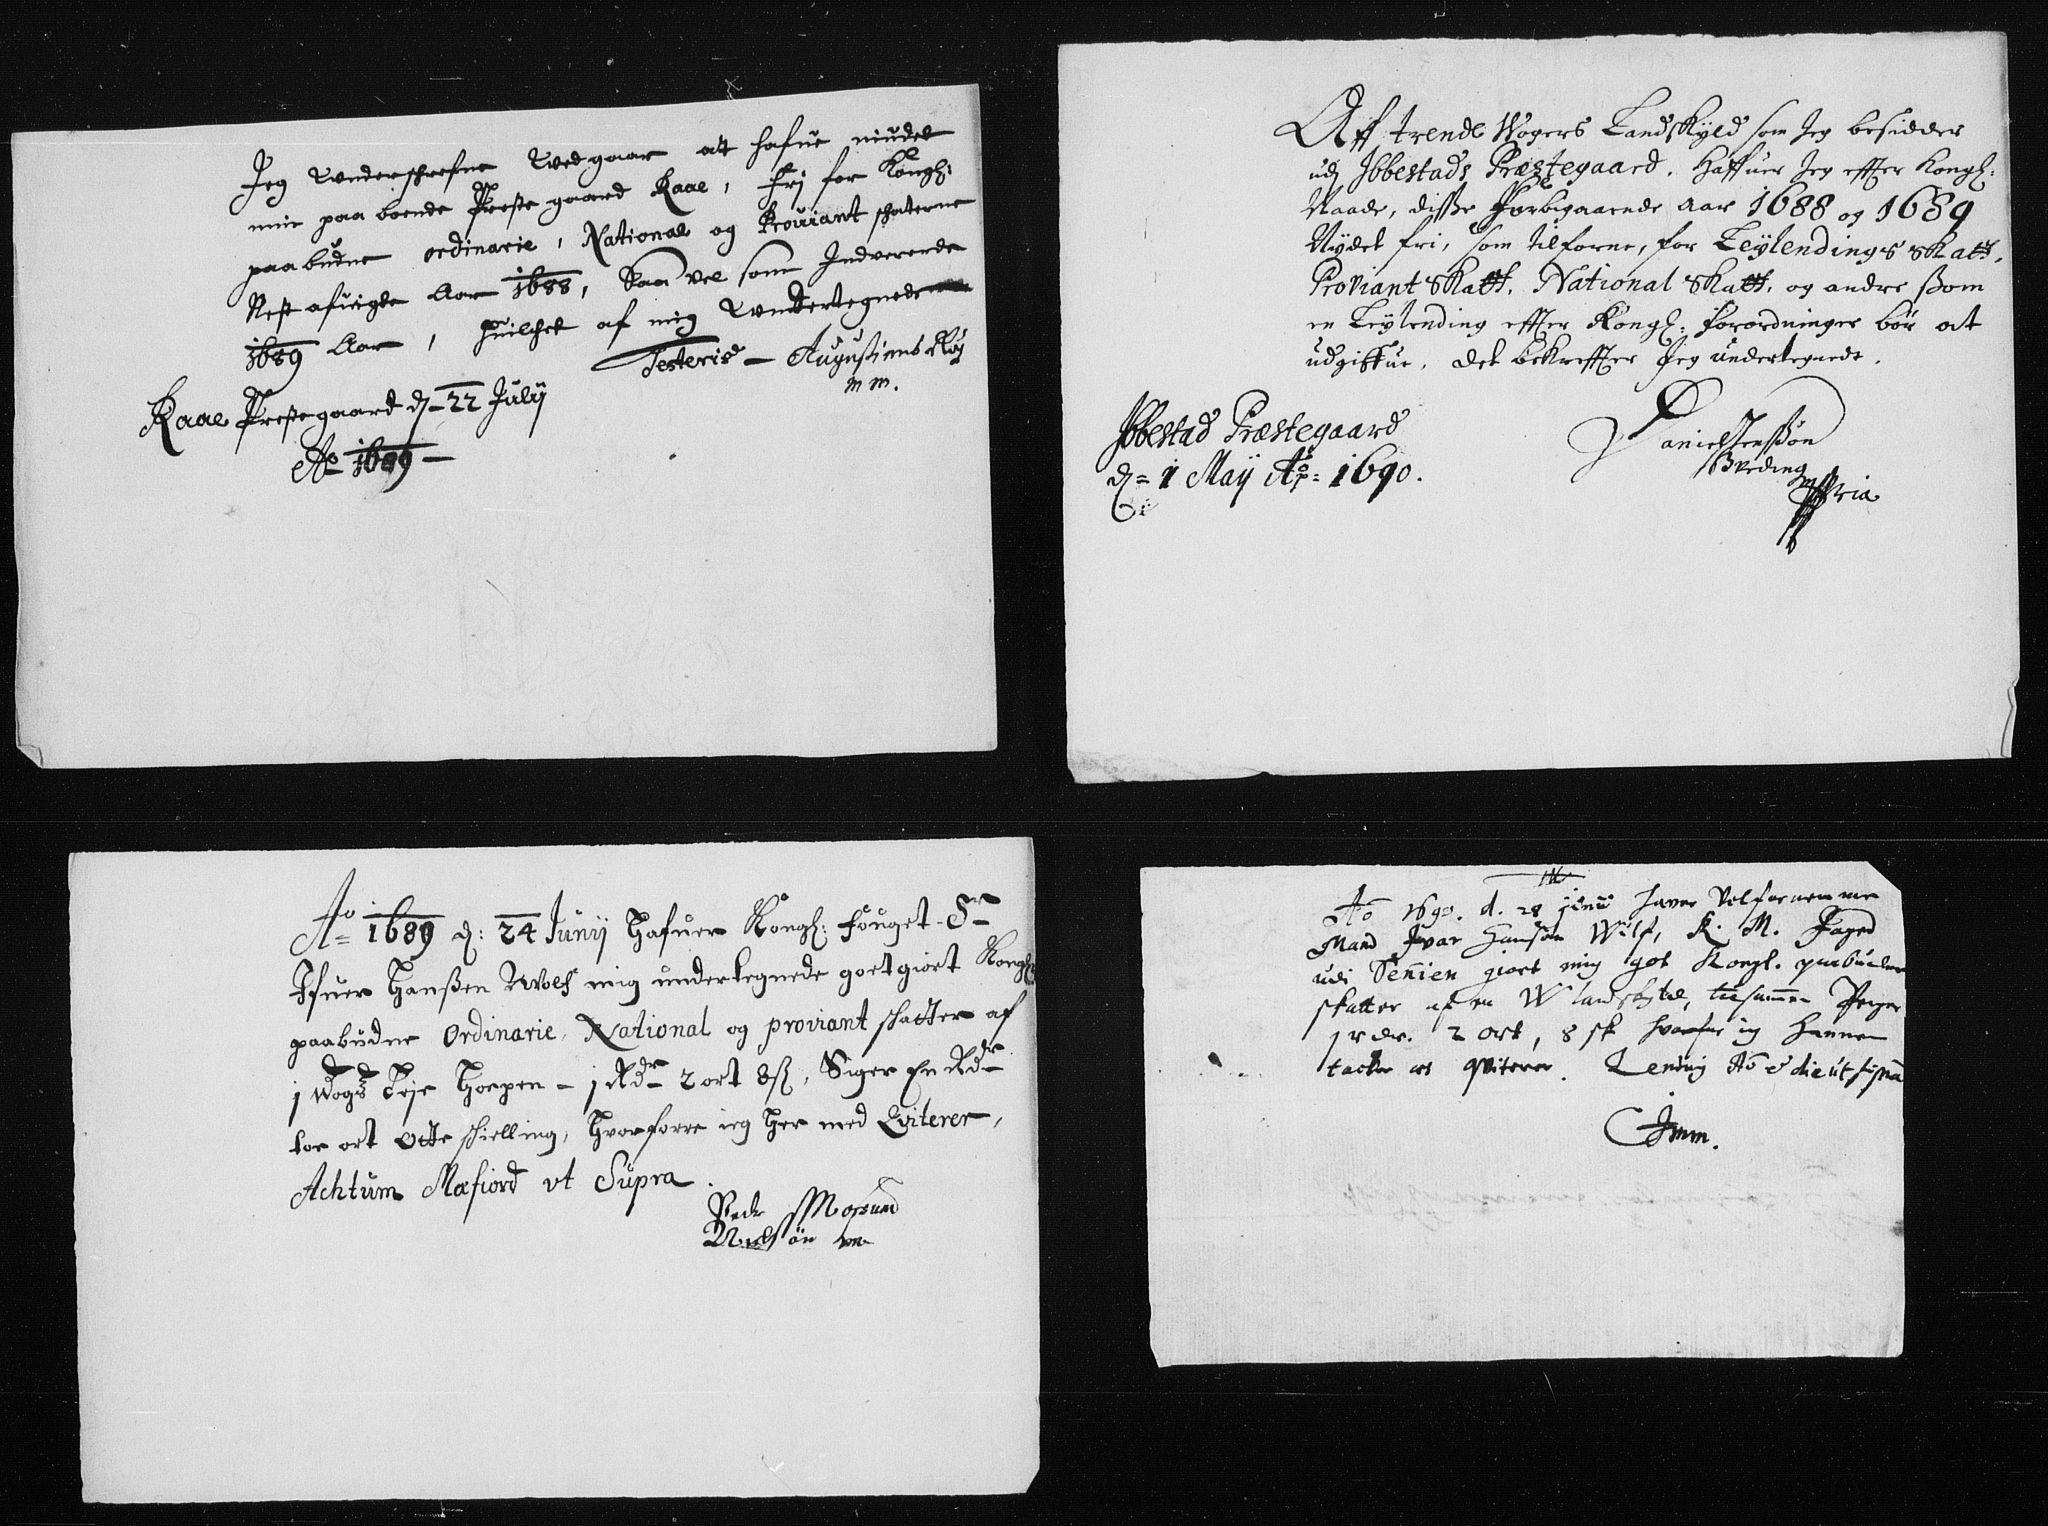 Jeg underschrefne Wed gaar att hafue niudet
min paa boende Preste gaard Kaae, frj for Kongl:
paabudne ordinarie, National og Proviant schaterne
Nest afuigte Aar 1688, Saa vel som Indverende
1689 Aar, huilchet af mig Undertegnede
Testeris – Augustinus Røg
mm.
Kaae Prestegaard d – 22 Julij
Ao 1689 –

Aff trende Wogers Landskyld som Jeg besidder
udj Ibbestads Præstegaard, Haffuer Jeg effter Kongl:
Naade, disse forbigaaende aar 1688 og 1689
Nydet fri, som tilforne, for Leylendings Skatt,
Proviant Skatt, National Skatt, og andre ssom
en Leylending effter Kongl: forordninger bør at
udgiffue, det bekreffter Jeg undertegnede.
Ibbestad Præstegaard
d = 1 Maij Ao = 1690.
Daniel Jenssøn
Breding
mppria

Ao = 1689 d: 24 Junij Hafuer Kongl: fouget – Sr
Ifuer Hanssen Wolf mig undertegnede goetgiort Kongl:
paabudne Ordinarie, National og proviant skatter af
j Wogs Leje Hoepen – j Rdr – 2 ort 8 ß, Siger En Rdr –
toe ort Otte skielling, Hvorforre ieg Her med Qviterer,
Achtum Mæfiord vt Supra.
Peder Morsund
Nielsøn m

Ao 1690. d. 28 junij haver Velfornemme
Mand Ivar Hansøn Wulf, K. M. Faaged
udi Sennien giort mig got Kongl. paabudne
skatter af en W landskyld, tilsammen Penge
1 rdr. 2 ort, 8 sk hvorfor ieg hannem
tacker oc qviterer. Lenvig Ao & die ut supra
mm.